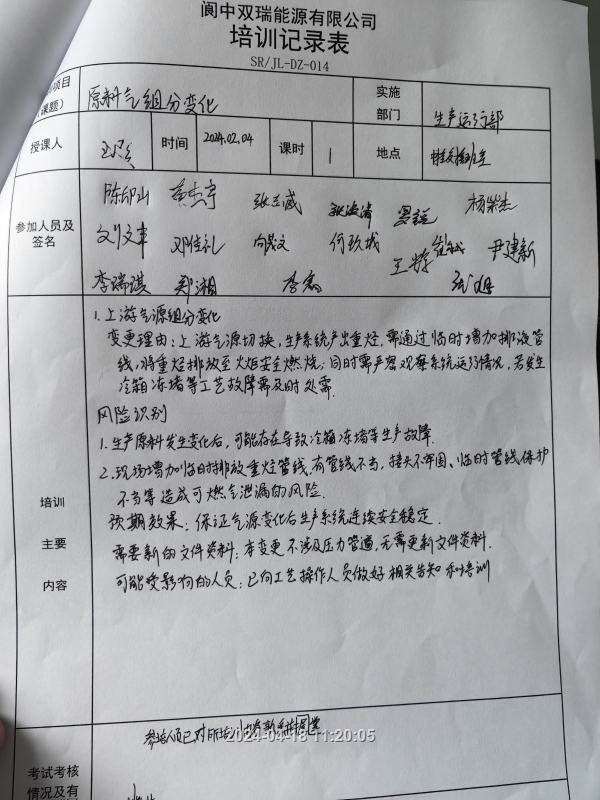 阆中双瑞能源有限公司
培训记录表
SR/JL-DZ-014
项目 原料气组分变化 实施
(课题) 部门 生产运行部
授课人 时间 2024.02.04 课时 1 地点
陈印山 张志威 杨紫杰
参加人员及 刘文军 邓佳礼 向茂文 何玖城 尹建新
签名
李瑞琪 郑湘 李焱 张旭
1.上游气源组分变化
变更理由:上游气源切换,生产系统产出重烃,需通过临时增加排液管
线,将重烃排放至火炬安全燃烧;同时需严密观察系统运行情况,若发生
冷箱冻堵等工艺故障需及时处理.
风险识别
1.生产原料发生变化后,可能存在导致冷箱冻堵等生产故障.
2.现场增加临时排放重烃管线,有管线不当,接头不牢固、临时管线保护
培训 不当等造成可燃气泄漏的风险.
预期效果:保证气源变化后生产系统连续安全稳定.
主要 需要新的文件资料:本变更不涉及压力管道,无需更新文件资料.
内容 可能受影响的人员:已向工艺操作人员做好相关告知和培训
参培人员已对所培训内容
2024-04-18 11:20:05
考试考核
情况及有